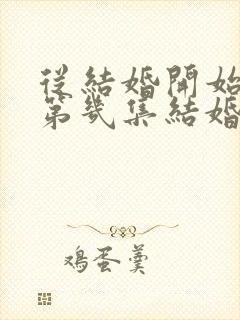 從結婚開始
第幾集結婚
鸡蛋羹